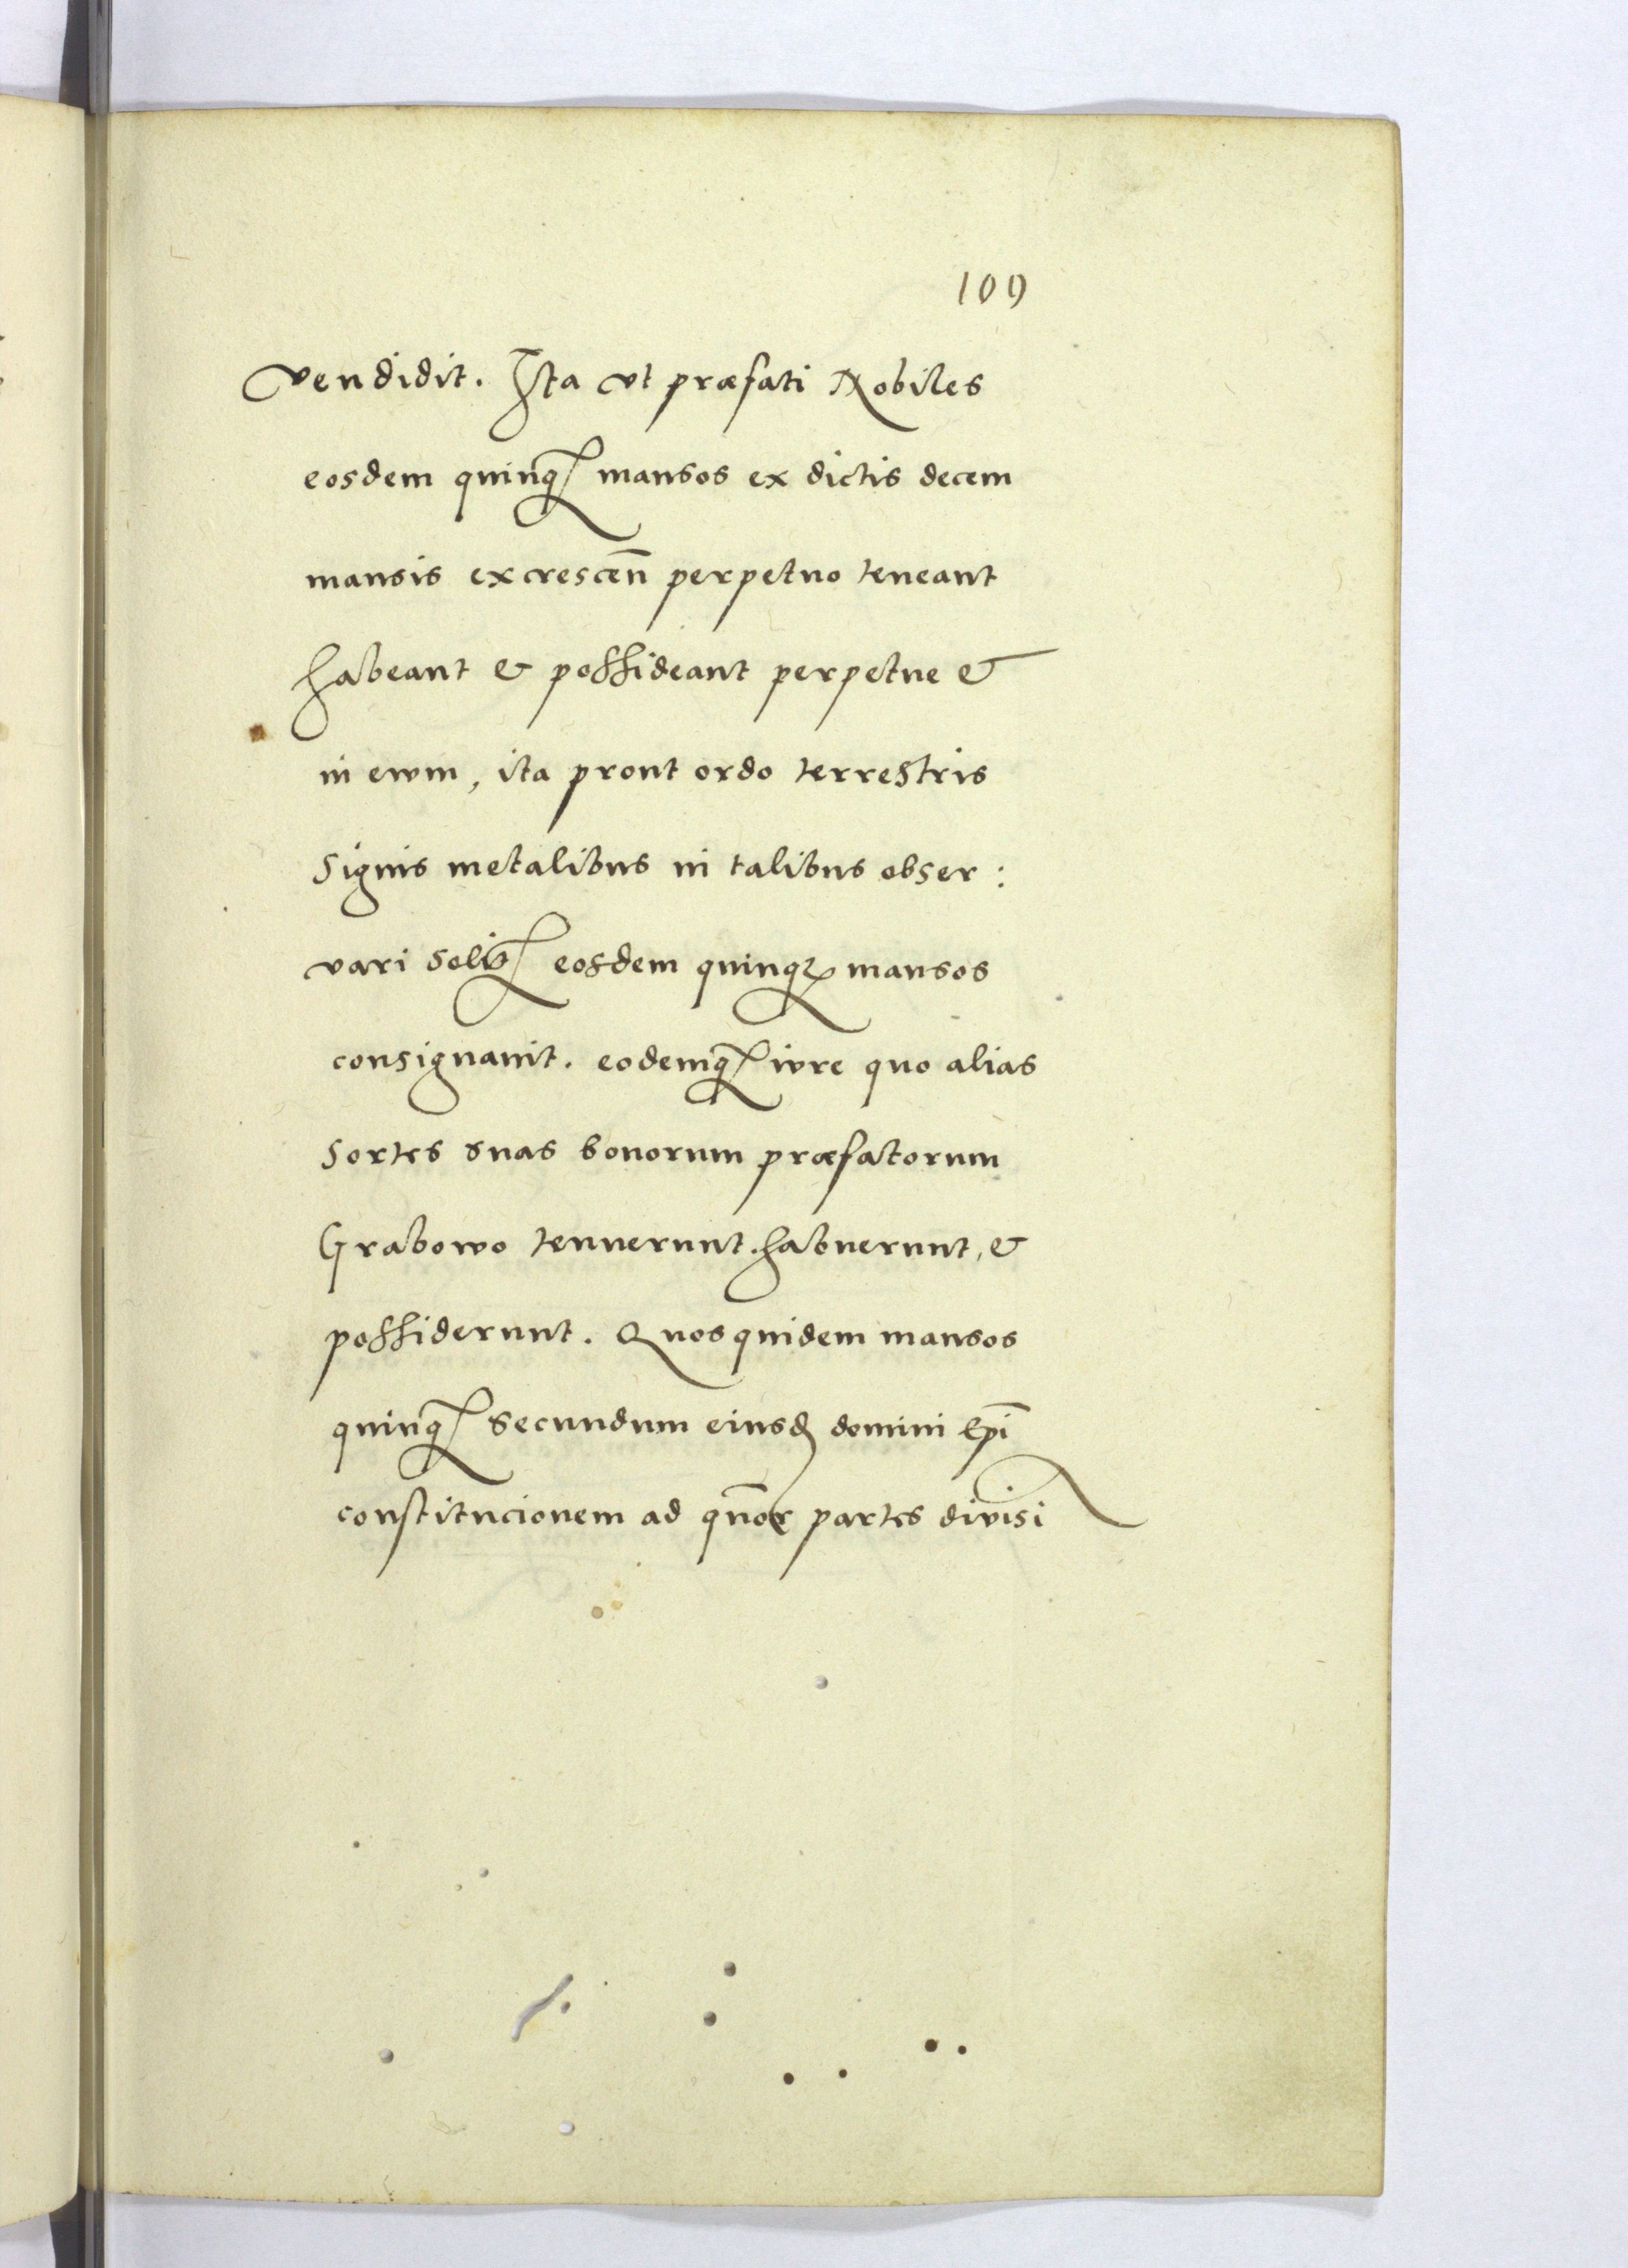 109
vendidit. Ita vt præfati Nobiles
eosdem quinqȝ mansos ex dictis decem
mansis excrescen̄ perpetuo teneant
habeant & possideant perpetue &
in ewm, ita prout ordo terrestris
signis metalibus in talibus obser:
vari solitȝ eosdem quinqȝ mansos
consignauit. eodemqȝ ivre quo alias
sortes suas bonorum præfatorum
Grabowo tenuerunt. habuerunt, &
possiderunt. Quosquidem mansos
quinqȝ secundum eiusd domini ep̄i
constitucionem ad qn̄or partes divisi